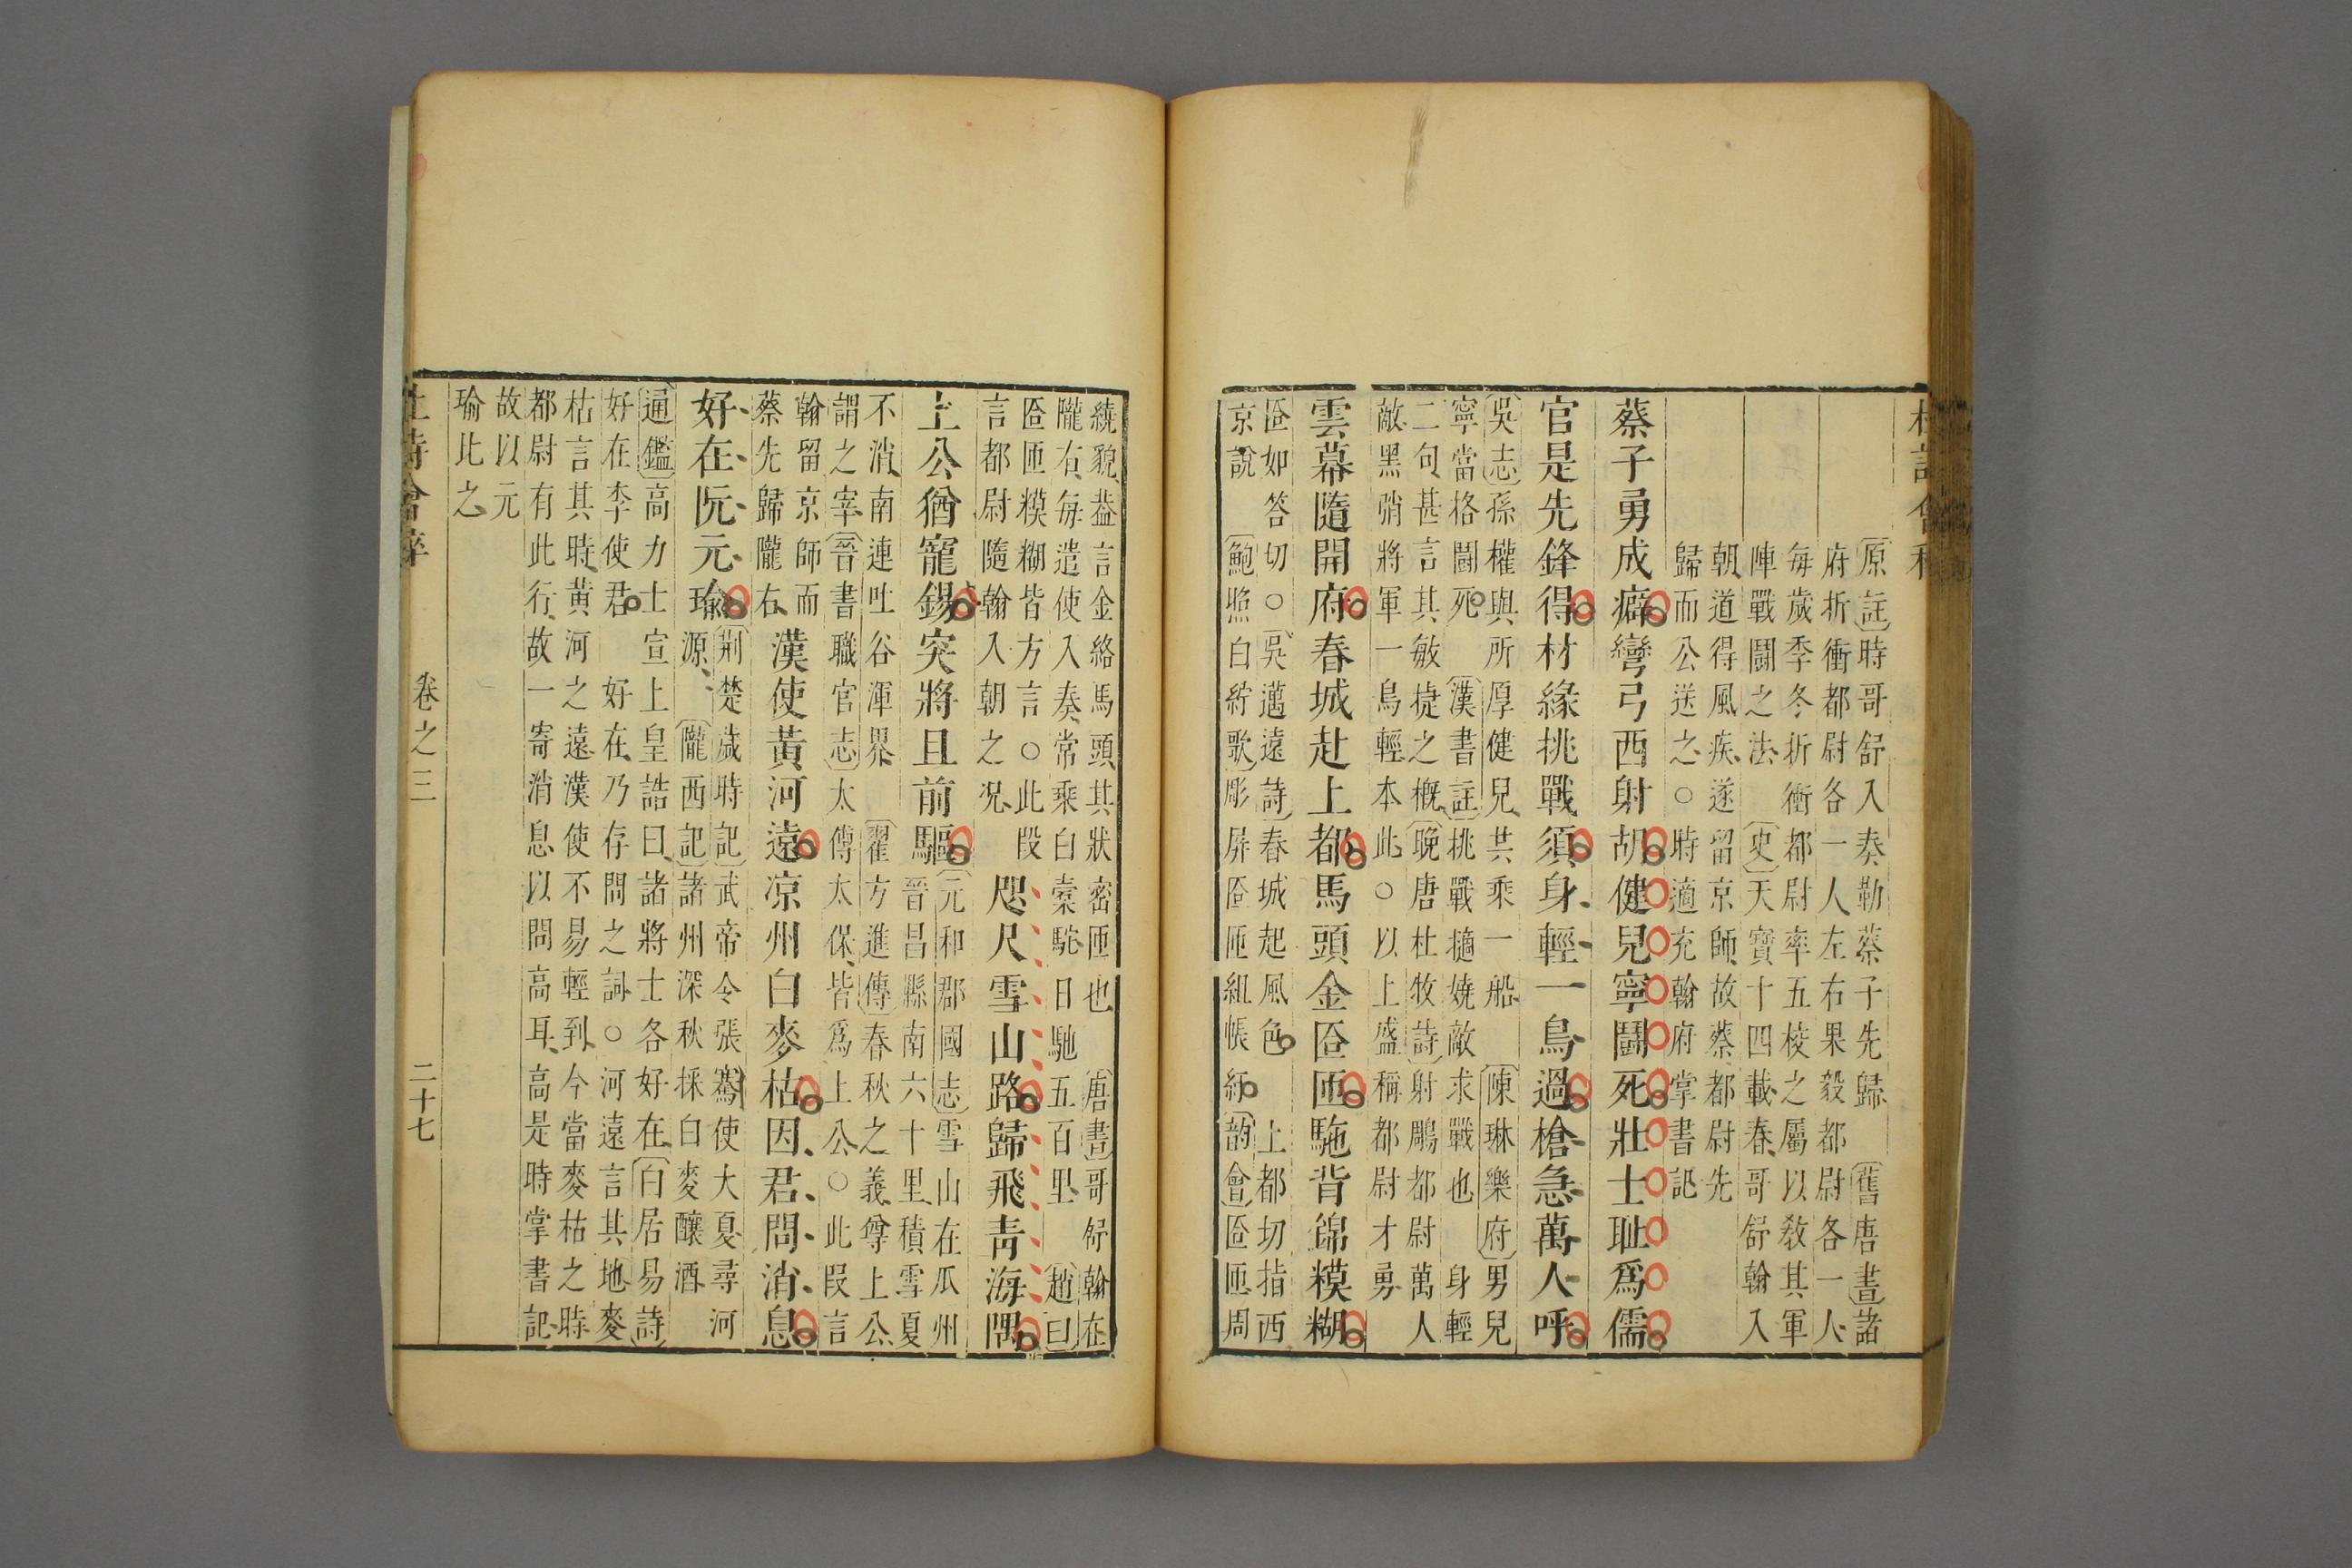 原註時哥舒入奏勒蔡子先歸　舊唐書諸
府折衝都尉各一人左右果毅都尉各一人
每歲季冬折衝都尉率五校之屬以敎其軍
陣戰鬬之法　史天寶十四載春哥舒翰入
朝道得風疾遂留京師故蔡都尉先
歸而公送之○時適充翰府掌書記
蔡子勇成癖彎弓西射胡健兒寧鬬死壯士耻爲儒
官是先鋒得材緣挑戰須身輕一鳥過槍急萬人呼
吳志孫權與所厚健兒共乘一船　陳琳樂府男兒
寧當格鬬死　漢書註挑戰擿嬈敵求戰也　身輕
二句甚言其敏捷之槪晚唐杜牧詩射鵰都尉萬人
敵黑矟將軍一鳥輕本此○以上盛稱都尉才勇
雲幕隨開府春城赴上都馬頭金匼匝駞背錦糢糊
匼如答切○吳邁遠詩春城起風色　上都切指西
京說　鮑照白紵歌彫屏匼匝組帳紓韵會匼匝周
繞貌葢言金絡馬頭其狀密匝也　唐書哥舒翰在
隴右每遣使入奏常乘白橐駝日馳五百里　趙曰
匼匝糢糊皆方言○此段
言都尉隨翰入朝之况
咫尺雪山路歸飛靑海隅
上公猶寵錫突將且前驅
元和郡國志雪山在瓜州
晉昌縣南六十里積雪夏
不消南連吐谷渾界　翟方進傳春秋之義尊上公
謂之宰晉書職官志太傅太保皆爲上公○此段言
翰留京師而
蔡先歸隴右
漢使黃河遠凉州白麥枯因君問消息
好在阮元瑜
荆楚歲時記武帝令張騫使大夏尋河
源　隴西記諸州深秋採白麥釀酒
通鑑高力士宣上皇誥曰諸將士各好在白居易詩
好在李使君　好在乃存問之詞○河遠言其地麥
枯言其時黃河之遠漢使不易輕到今當麥枯之時
都尉有此行故一寄消息以問高耳高是時掌書記
故以元
瑜比之
卷之三
二十七